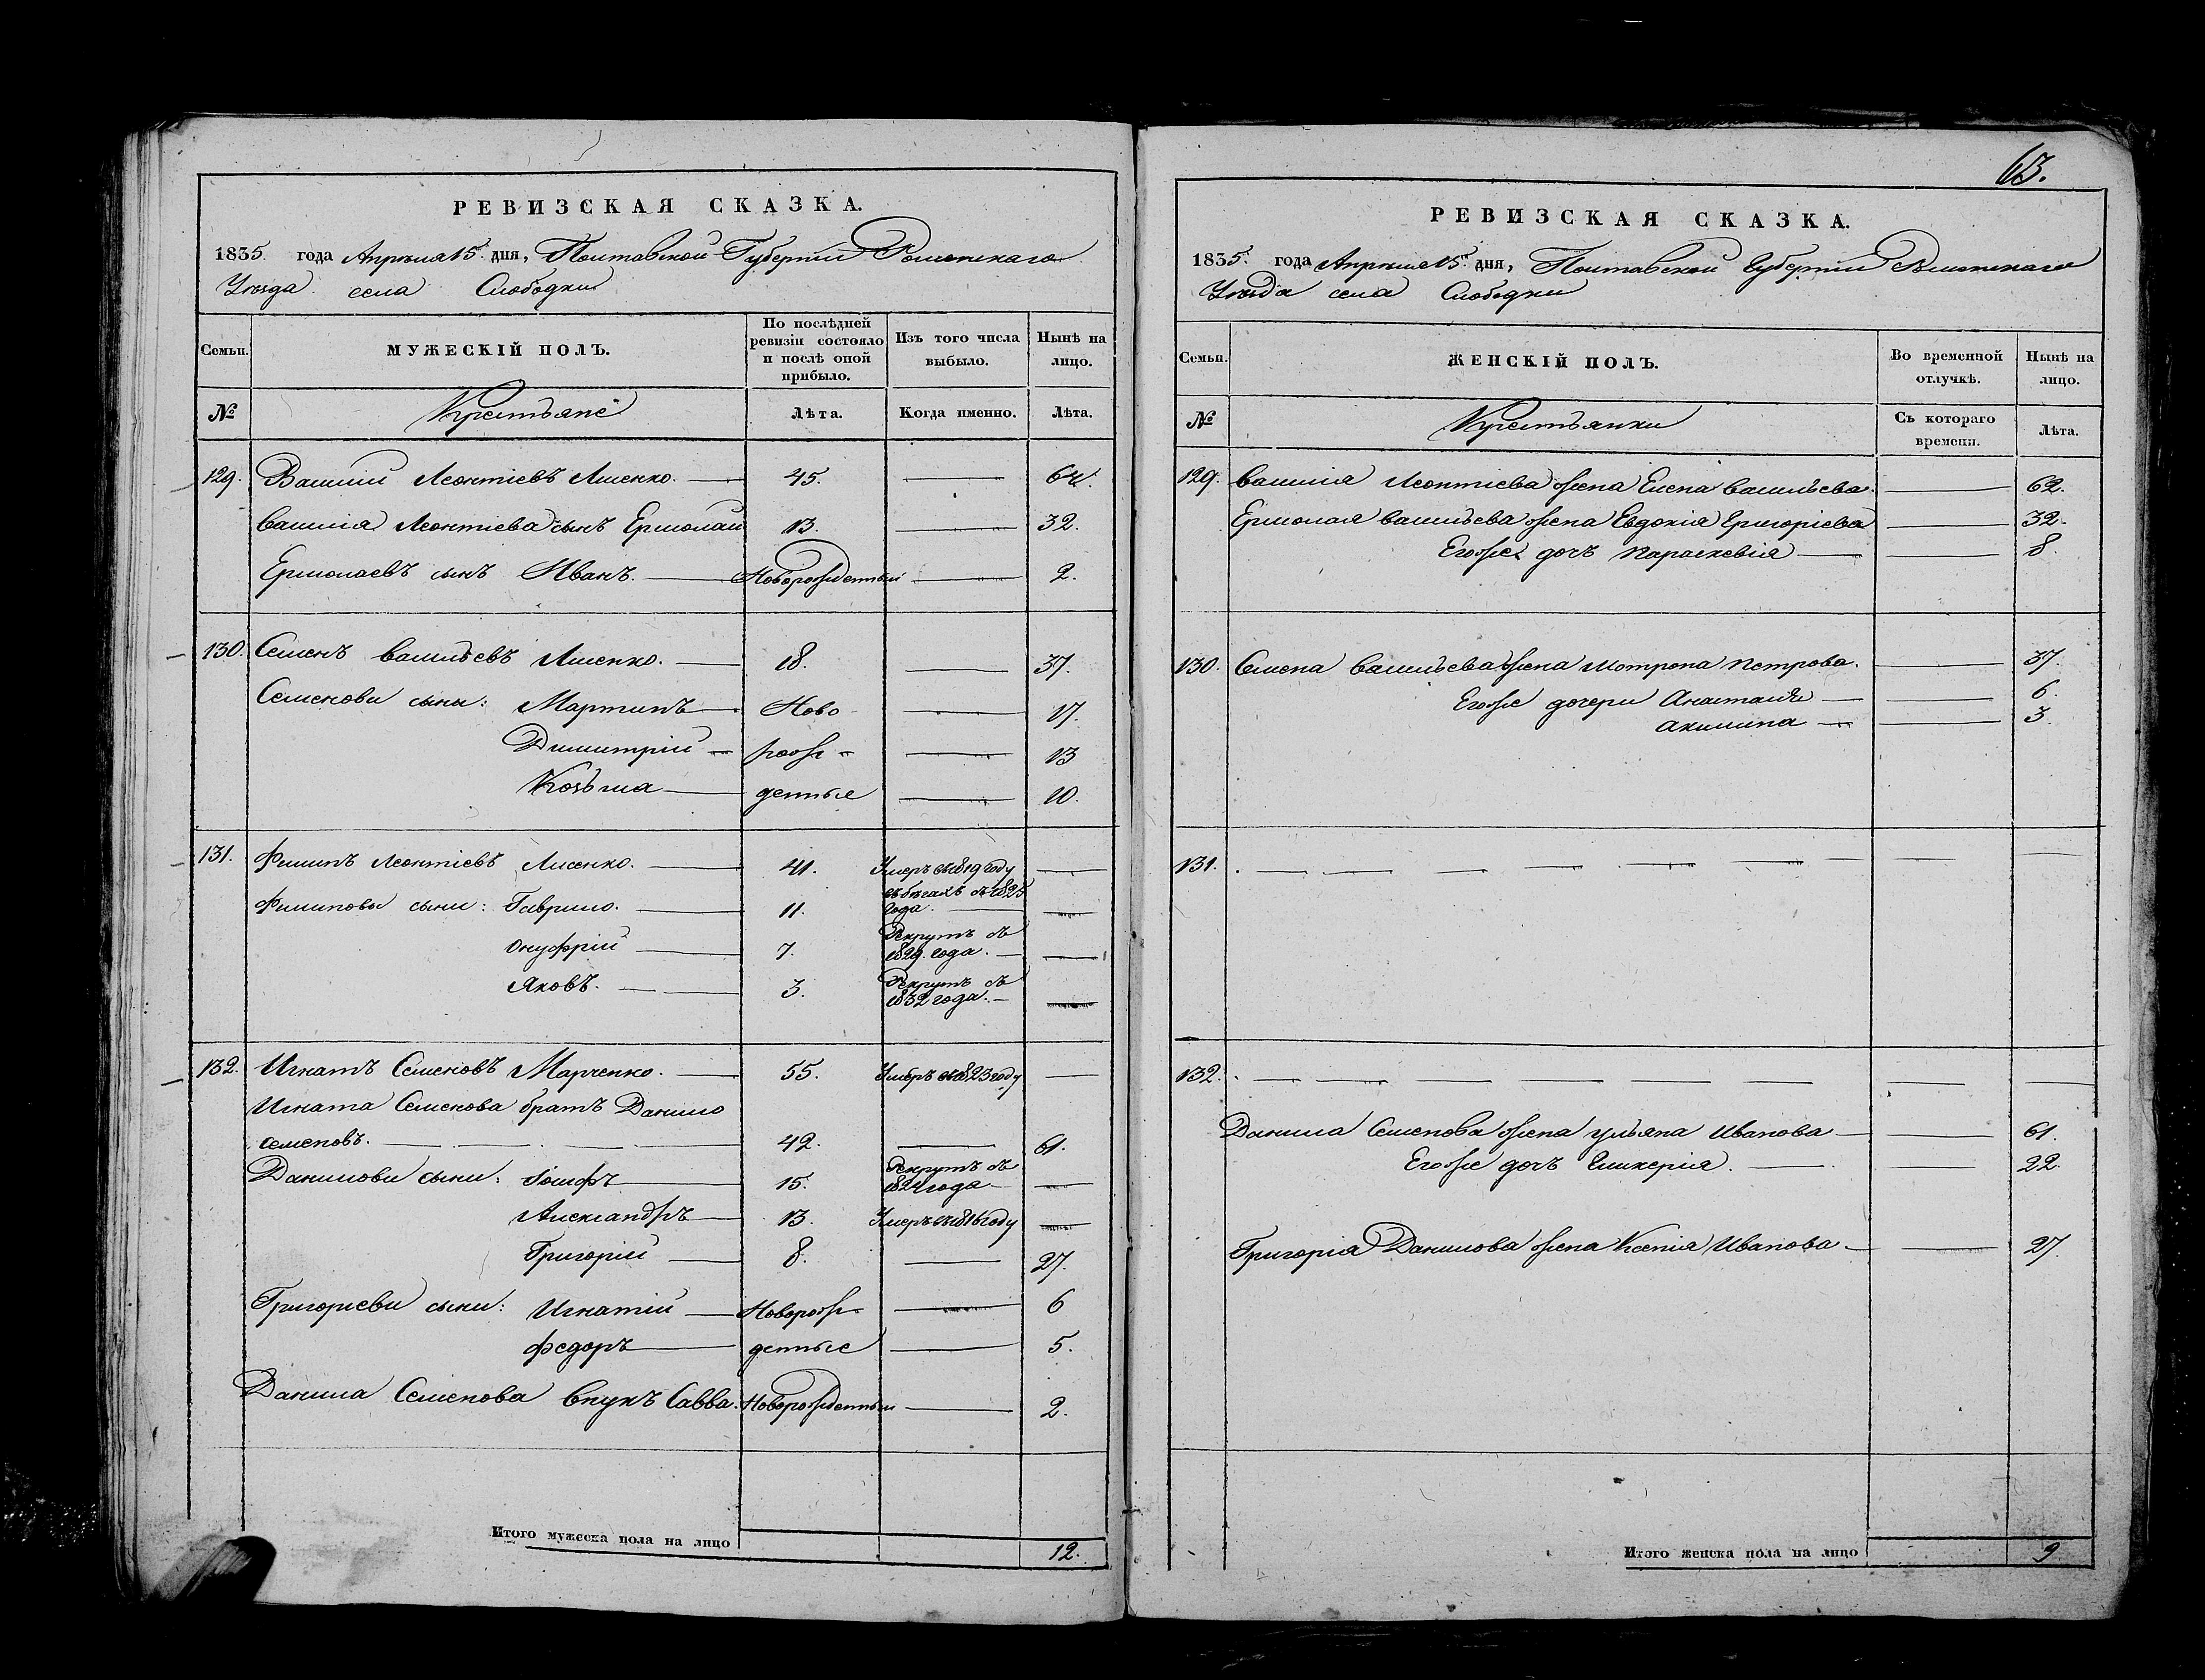 РЕВИЗСКАЯ СКАЗКА.
1835. года Апрѣля 15. дня, Полтавской Губерніи Роменскаго
Уѣзда села Слободки
Семьи.
МУЖЕСКІЙ ПОЛЪ.
По послѣдней ревизіи состояло и послѣ оной прибыло.
Изъ того числа выбыло.
Нынѣ на лицо.
№
Крестьяне
Лѣта.
Когда именно.
Лѣта.
129. Василій Леонтіевъ Лисенко. 45. 64.
Василія Леонтіева сынъ Ермолай 13. 32.
Ермолаевъ сынъ Иванъ. Новорожденный 2.
130. Семенъ Васильевъ Лисенко. 18. 37.
Семенови сыны: Мартинъ Ново 17.
Димитрій рож- 13
Козьма денные 10.
131. Филипъ Леонтіевъ Лисенко. 41. Умеръ въ 1819 году
Филипови сыни: Гаврило. 11. въ бѣгахъ съ 1825 года.
Онуфрій 7. Рекрутъ съ 1829. года.
Яковъ. 3. Рекрутъ съ 1832 года.
132. Игнатъ Семеновъ Марченко. 55. Умеръ въ 1823 году
Игната Семенова братъ Данило
Семеновъ. 42. 61.
Данилови сыни: Іосифъ 15. Рекрутъ съ 1824 года
Александръ 13. Умеръ въ 1816 году
Григорій 8. 27.
Григориеви сыни: Игнатій Новорож- 6
Федоръ денные 5.
Данила Семенова внукъ Савва. Новорожденный 2.
Итого мужеска пола на лицо 12.
63.
РЕВИЗСКАЯ СКАЗКА.
1835. года Апрѣля 15. дня, Полтавской Губерніи Роменскаго
Уѣзда села Слободки
Семьи.
ЖЕНСКІЙ ПОЛЪ.
Во временной отлучкѣ.
Нынѣ на лицо.
№
Крестьянки
Съ котораго времени.
Лѣта.
129. Василія Леонтіева жена Елена Васильева. 62.
Ермолая Васильева жена Евдокія Григоріева 32.
Егоже дочь Параскевія 8.
130. Семена Васильева жена Мотрона Петрова. 37.
Егоже дочери Анастасія 6.
Акилина 3.
131.
132.
Данила Семенова жена Ульяна Иванова 61.
Егоже дочь Гликерія. 22.
Григорія Данилова жена Ксенія Иванова 27.
Итого женска пола на лицо 9.